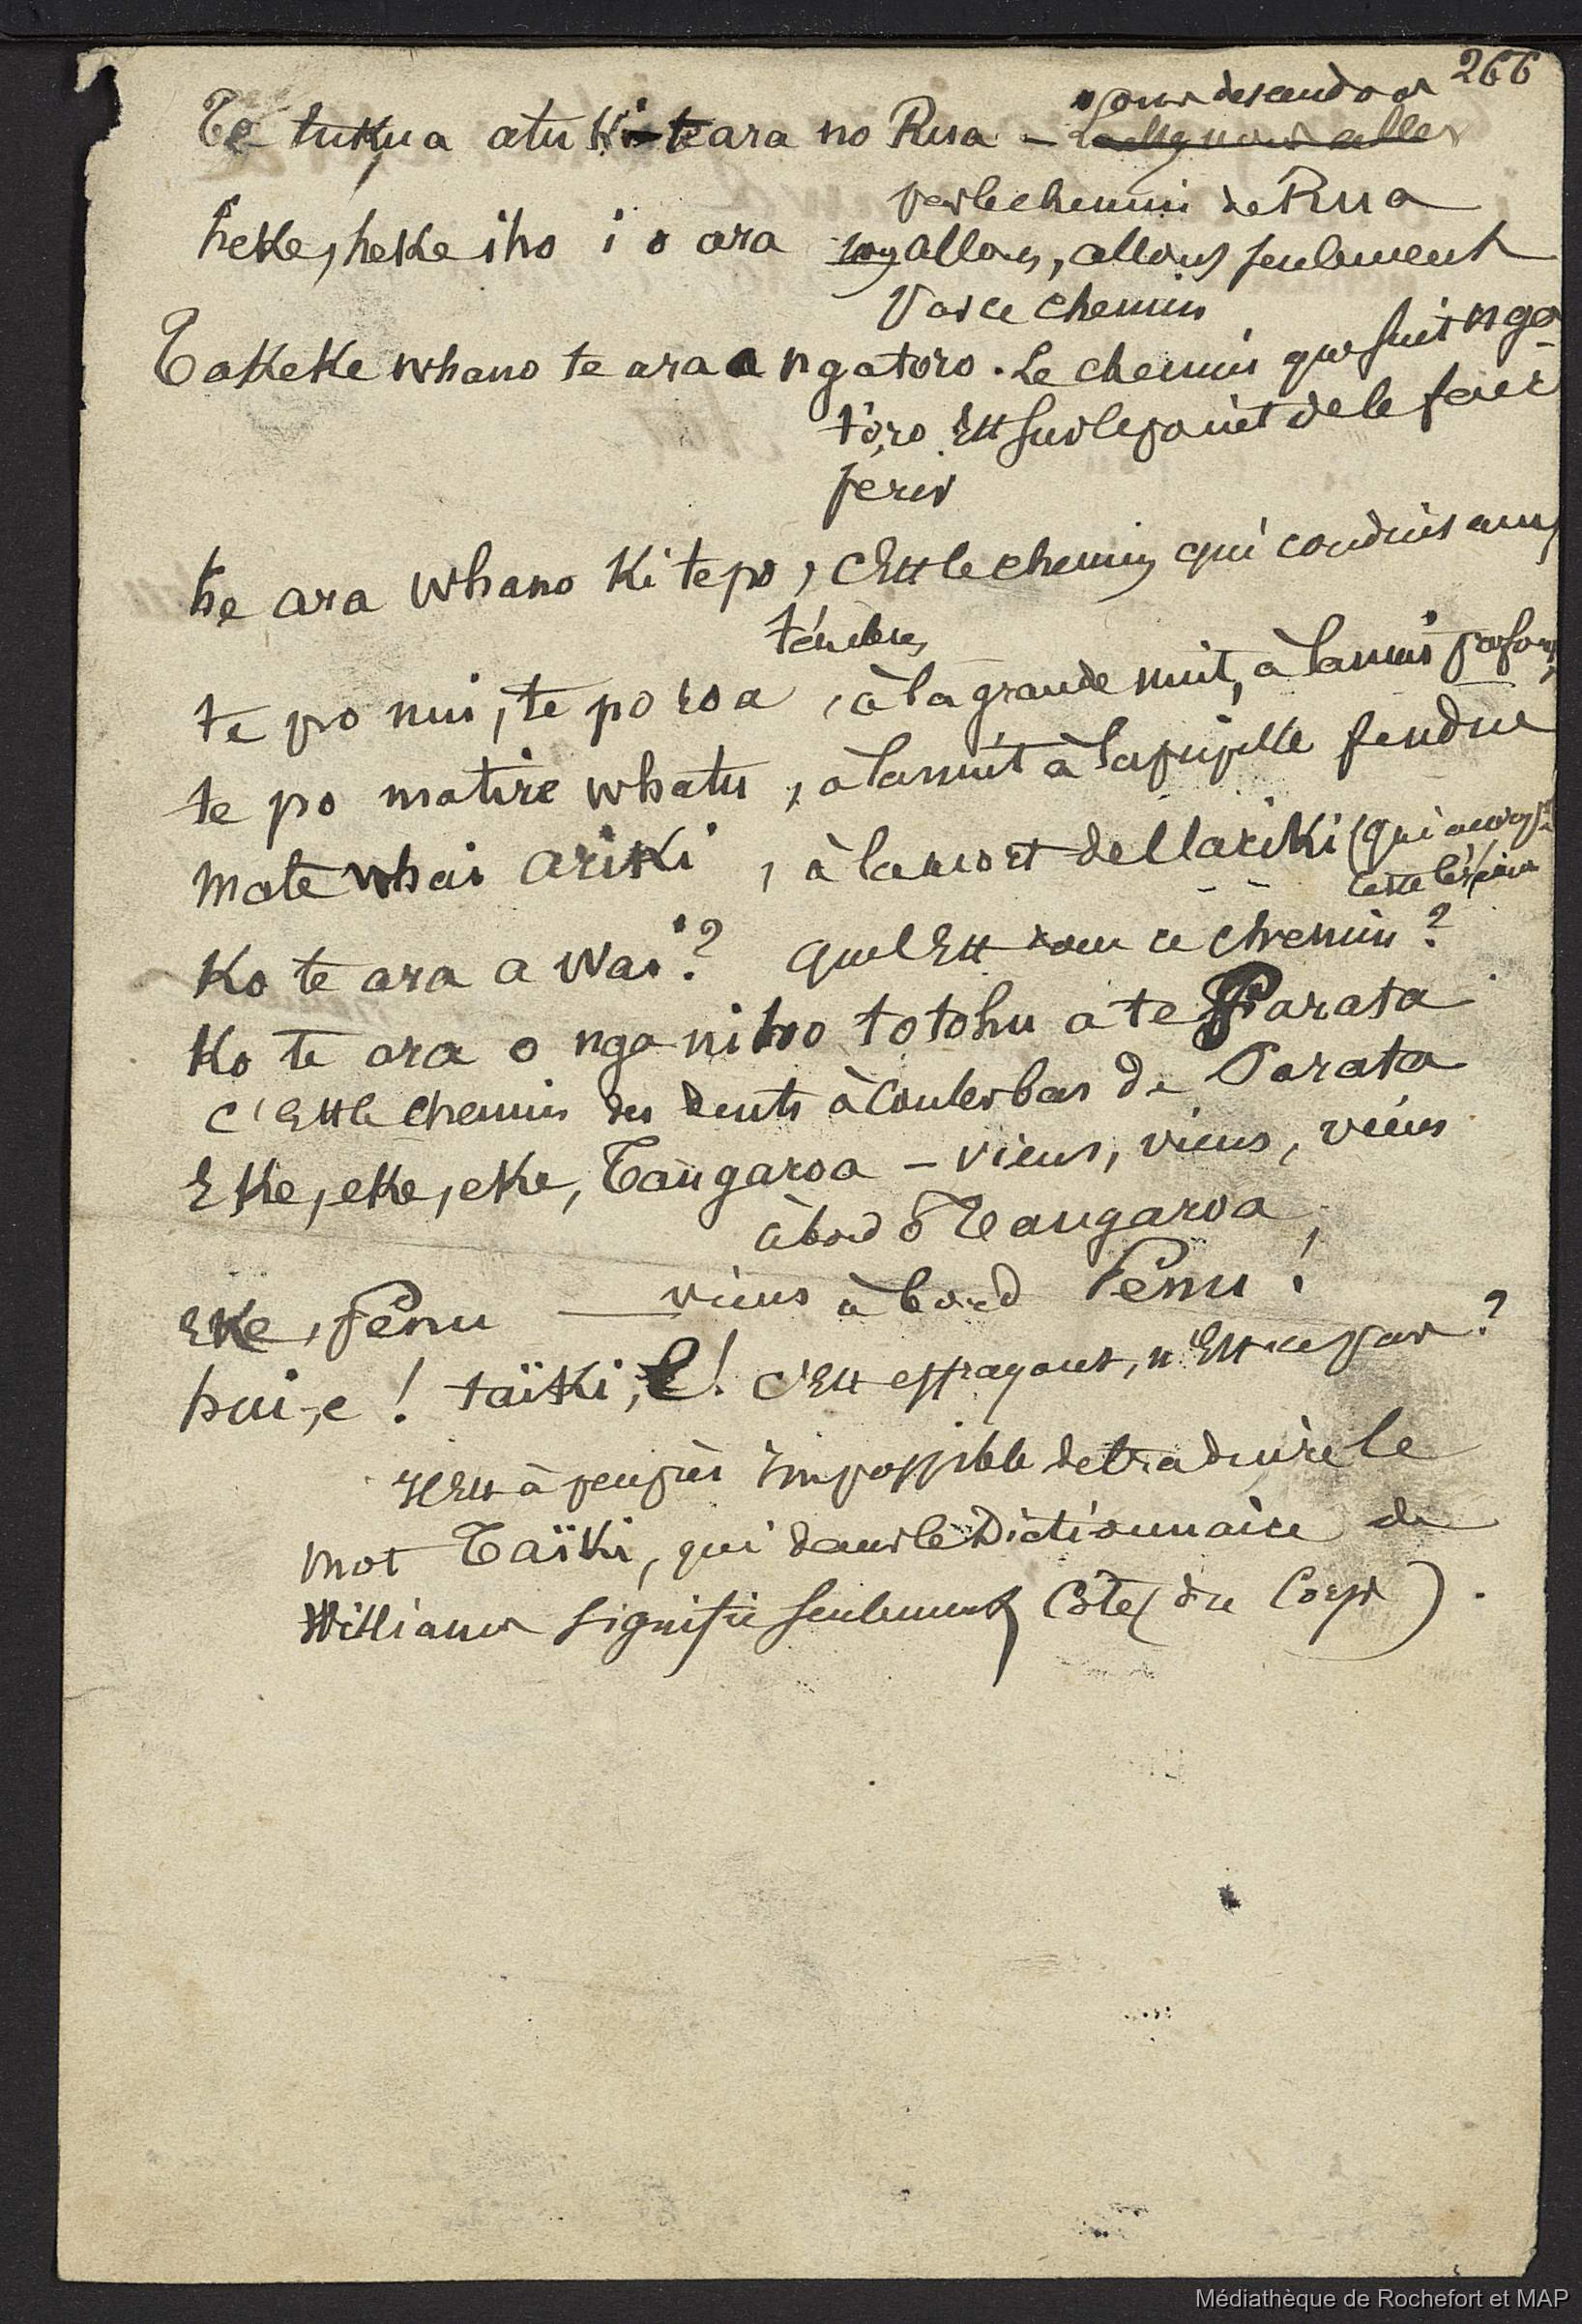 266
nous descendons
Te tukua atu ki te ara no Rua – laissez nous aller
par le chemin de Rua
heke, heke iho i o ara allons, allons seulement
par ce chemin
Takeke whano te ara a ngatoro. Le chemin que suit nga-
toro Est sur le point de le faire
périr
he ara whano ki te po, c'Est le chemin qui conduit aux
ténèbres
te po nui, te po roa, à la grande nuit, à la nuit
te po matire whatu, à la nuit à la pupille fendue
mate whai ariki, à la mort de l'ariki (qui
Ko te ara a wai? quel Est donc ce chemin?
Ko te ara o nga niho totohu a te Parata
c'Est le chemin des dents à couler bas de Parata
Eke, eke, eke, Tangaroa – viens, viens, viens
à bord ô Tangaroa,
Eke, Penu — viens à bord Penu!
hui, e! taïki, E! c'Est effrayant, n'Est ce pas?
Il Est à peu près impossible de traduire le
mot Taïki, qui dans le Dictionnaire de
Williams signifie seulement Côte (du Corps).
Médiathèque de Rochefort et MAP